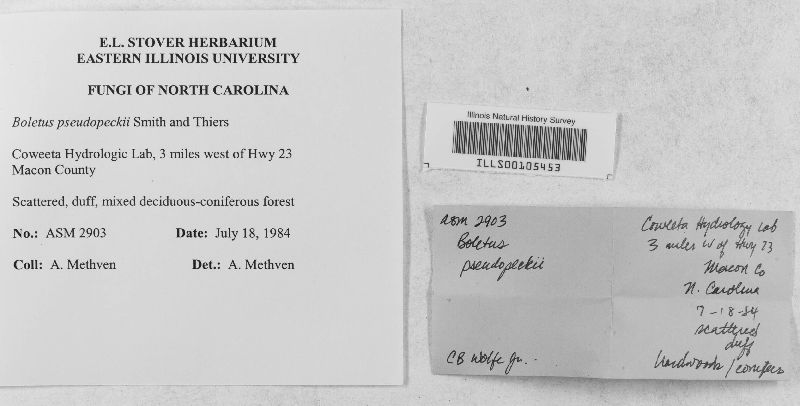 E.L. STOVER HERBARIUM
EASTERN ILLINOIS UNIVERSITY
FUNGI OF NORTH CAROLINA
Boletus pseudopeckii Smith and Thiers
Coweeta Hydrologic Lab, 3 miles west of Hwy 23
Macon County
Scattered, duff, mixed deciduous-coniferous forest
No.: ASM 2903 Date: July 18, 1984
Coll: A. Methven Det.: A. Methven
Illinois Natural History Survey
ILLS00105453
ASM 2903
Boletus
pseudopeckii
CB Wolfe Jr.
Coweeta Hydrology Lab
3 miles W of Hwy 23
Macon Co
N. Carolina
7-18-84
scattered
duff
hardwoods / conifers